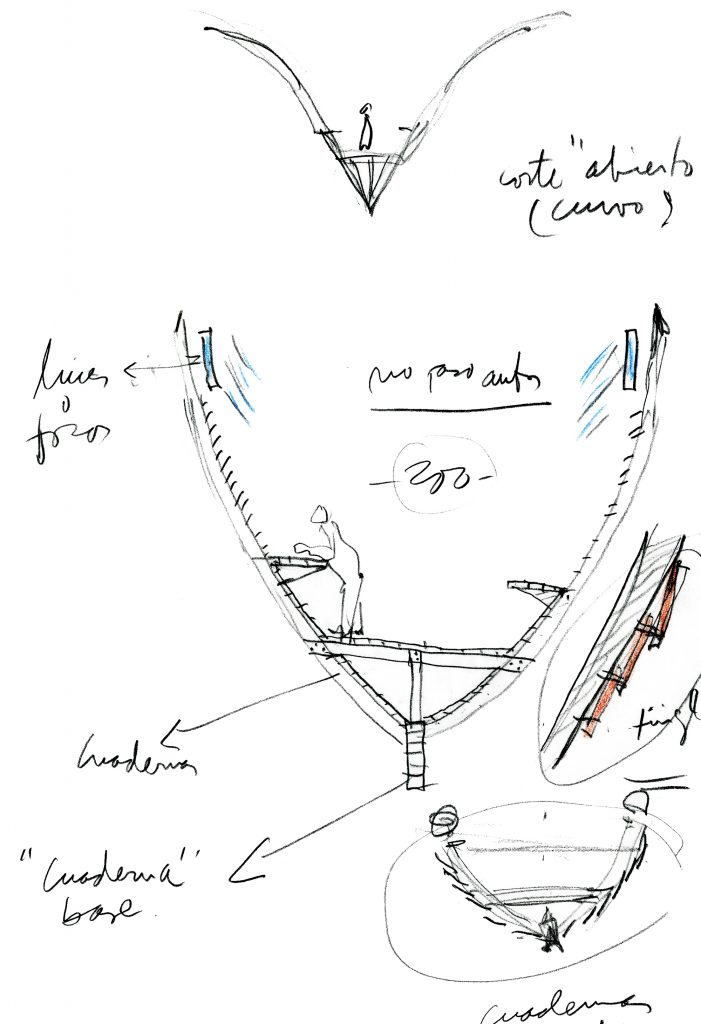 corte "abierto
(curvo)
luces
o
focos
no paso autos
-200-
tingl
cuadernas
"cuaderna"
base
cuadernas